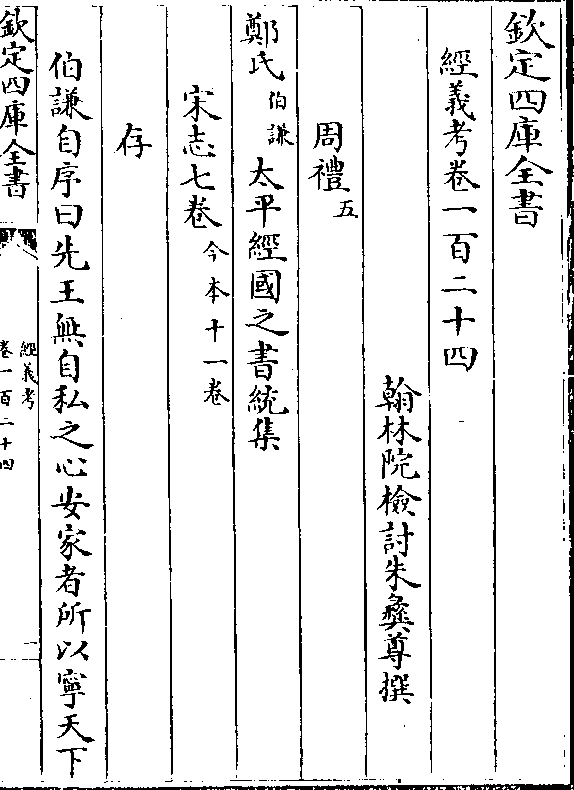 欽定四庫全書
經義考卷一百二十四
翰林院檢討朱彝尊撰
周禮五
鄭氏伯謙太平經國之書統集
宋志七卷今本十一卷
存
伯謙自序曰先王無自私之心安家者所以寧天下
欽定四庫全書
經義考
卷一百二十四
一